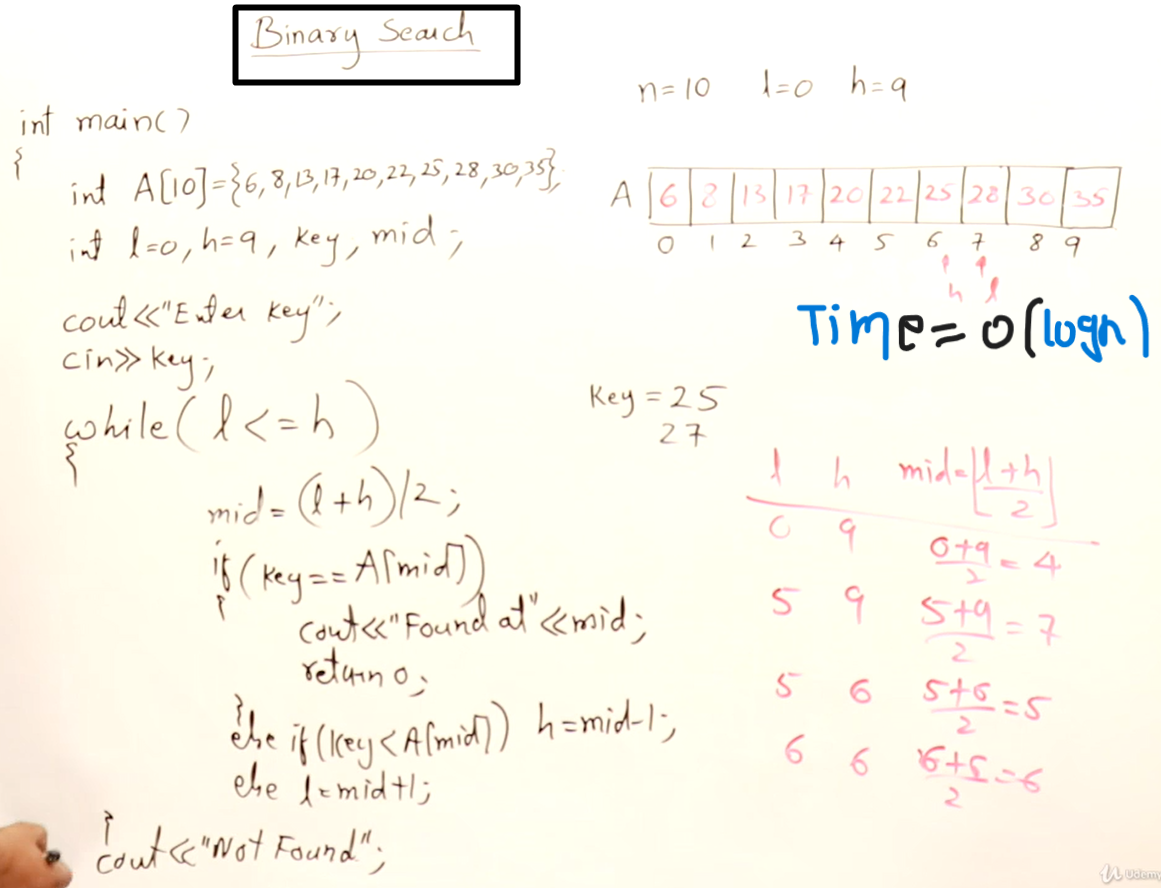 Binary Search
int main()
{
int A[10]={6,8,13,17,20,22,25,28,30,35};
int l=0, h=9, key, mid;
cout<<"Enter key";
cin>>key;
while( l<=h )
{
mid=(l+h)/2;
if(key==A[mid])
{
cout<<"Found at"<<mid;
return 0;
}
else if(key<A[mid]) h=mid-1;
else l=mid+1;
}
cout<<"Not Found";
n=10 l=0 h=9
A 6 8 13 17 20 22 25 28 30 35
0 1 2 3 4 5 6 7 8 9
h l
Time=o(logn)
Key=25
27
l h mid=⌊l+h/2⌋
0 9 0+9/2=4
5 9 5+9/2=7
5 6 5+6/2=5
6 6 6+6/2=6
Udemy